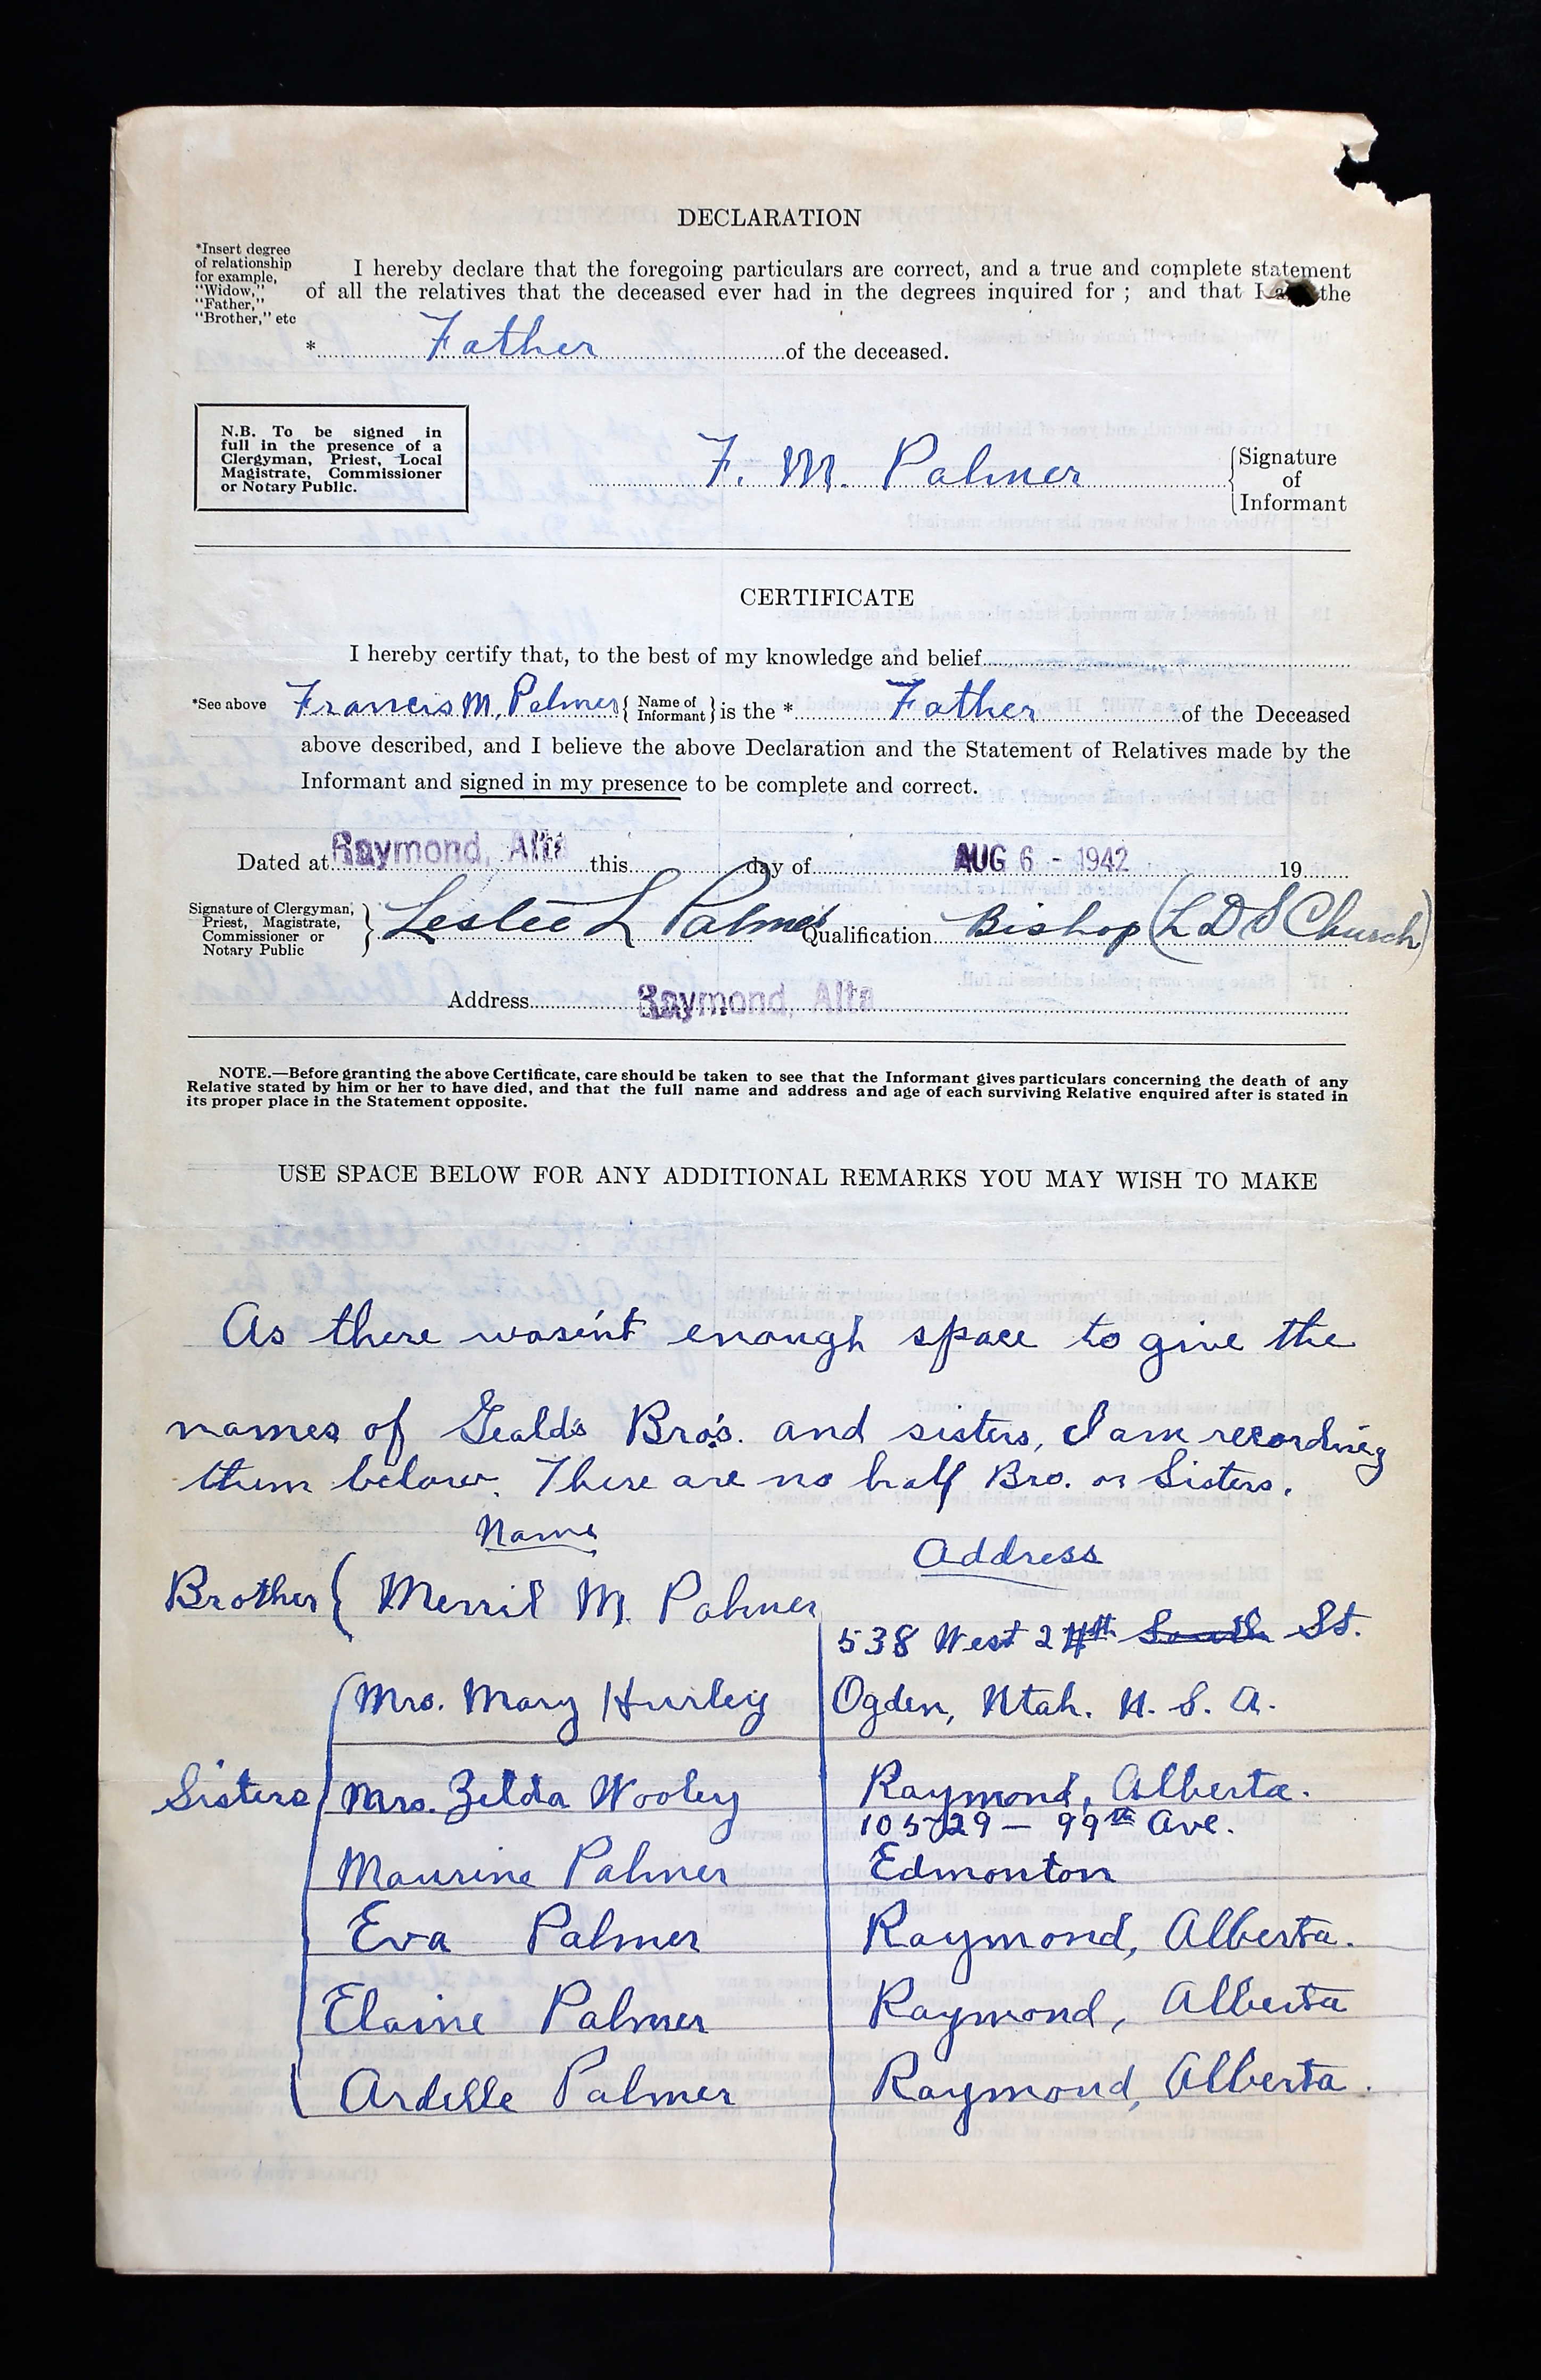 DECLARATION
*Insert degree
of relationship
for example,
"Widow,"
"Father,"
"Brother," etc
I hereby declare that the foregoing particulars are correct, and a true and complete statement
of all the relatives that the deceased ever had in the degrees inquired for ; and that I the
* Father of the deceased.
N.B. To be signed in
full in the presence of a
Clergyman, Priest, Local
Magistrate, Commissioner
or Notary Public.
F. M. Palmer
Signature
of
Informant
CERTIFICATE
I hereby certify that, to the best of my knowledge and belief
*See above Francis M. Palmer { Name of Informant } is the * Father of the Deceased
above described, and I believe the above Declaration and the Statement of Relatives made by the
Informant and signed in my presence to be complete and correct.
Dated at Raymond, Alta this day of AUG 6 - 1942 19
Signature of Clergyman,
Priest, Magistrate,
Commissioner or
Notary Public
Leslie L Palmer Qualification Bishop (L D S Church)
Address Raymond, Alta
NOTE.—Before granting the above Certificate, care should be taken to see that the Informant gives particulars concerning the death of any
Relative stated by him or her to have died, and that the full name and address and age of each surviving Relative enquired after is stated in
its proper place in the Statement opposite.
USE SPACE BELOW FOR ANY ADDITIONAL REMARKS YOU MAY WISH TO MAKE
As there wasen't enough space to give the
names of Geald's Bro's. and sisters, I am recording
them below. There are no half Bro. or Sisters.
Name
Address
Brother { Merril M. Palmer
538 West 24th South St.
Mrs. Mary Hurley Ogden, Utah. U. S. A.
Sisters Mrs. Zelda Wooley Raymond, Alberta.
10529 - 99th Ave.
Maurine Palmer Edmonton
Eva Palmer Raymond, Alberta.
Elaine Palmer Raymond, Alberta
Ardelle Palmer Raymond, Alberta.